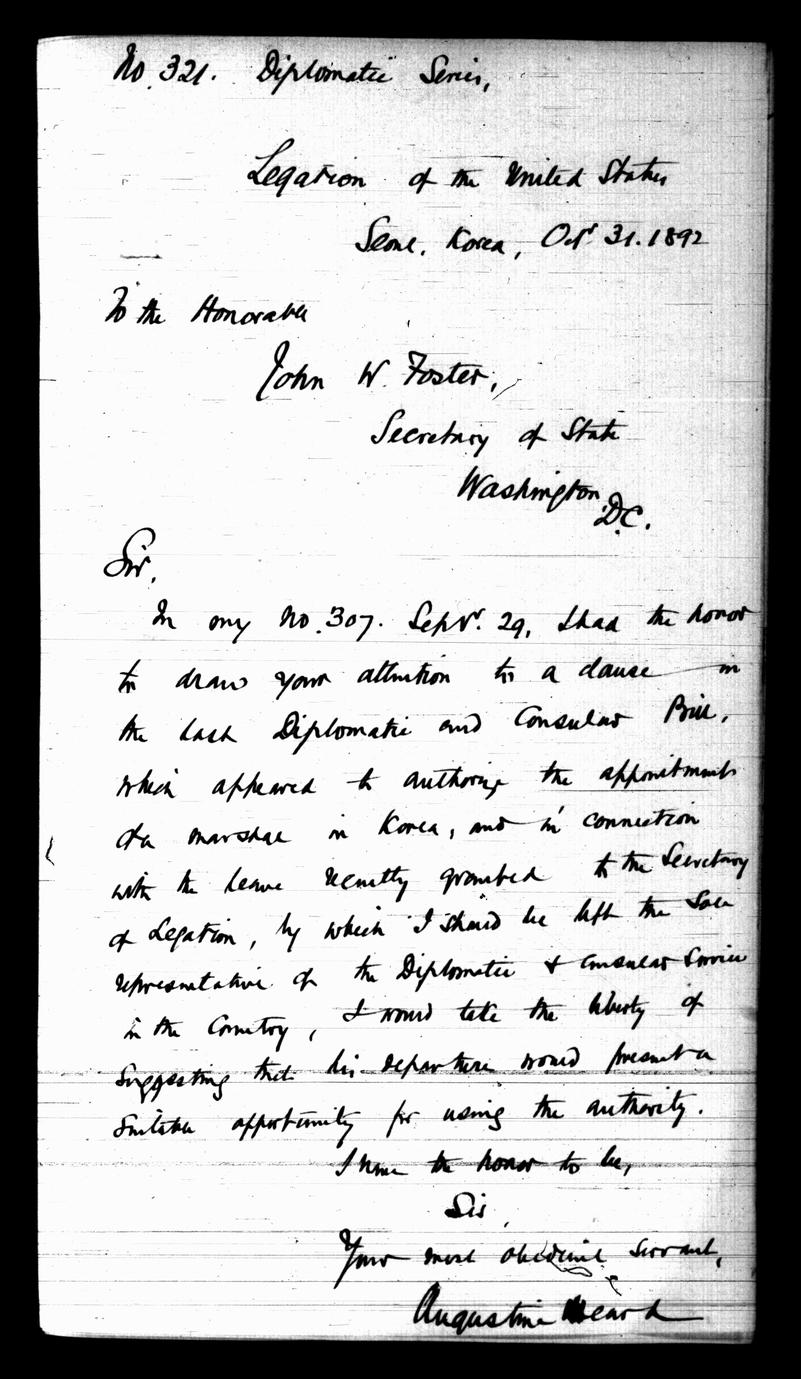 No. 321. Diplomatic Series,
Legation of the United States
Seoul, Korea, Oct. 31. 1892
To the Honorable
John W. Foster,
Secretary of State
Washington,
D.C.
Sir,
In my No. 307. Sept. 29, I had the honor
to draw your attention to a clause in
the last Diplomatic and Consular Bill,
which appeared to authorize the appointment
of a marshal in Korea, and in connection
with the leave recently granted to the Secretary
of Legation, by which I should be left the Sole
representative of the Diplomatic & Consular Service
in the Country, I would take the liberty of
suggesting that his departure would present a
suitable opportunity for using the authority.
I have the honor to be,
Sir,
Your most obedient servant,
Augustine Heard